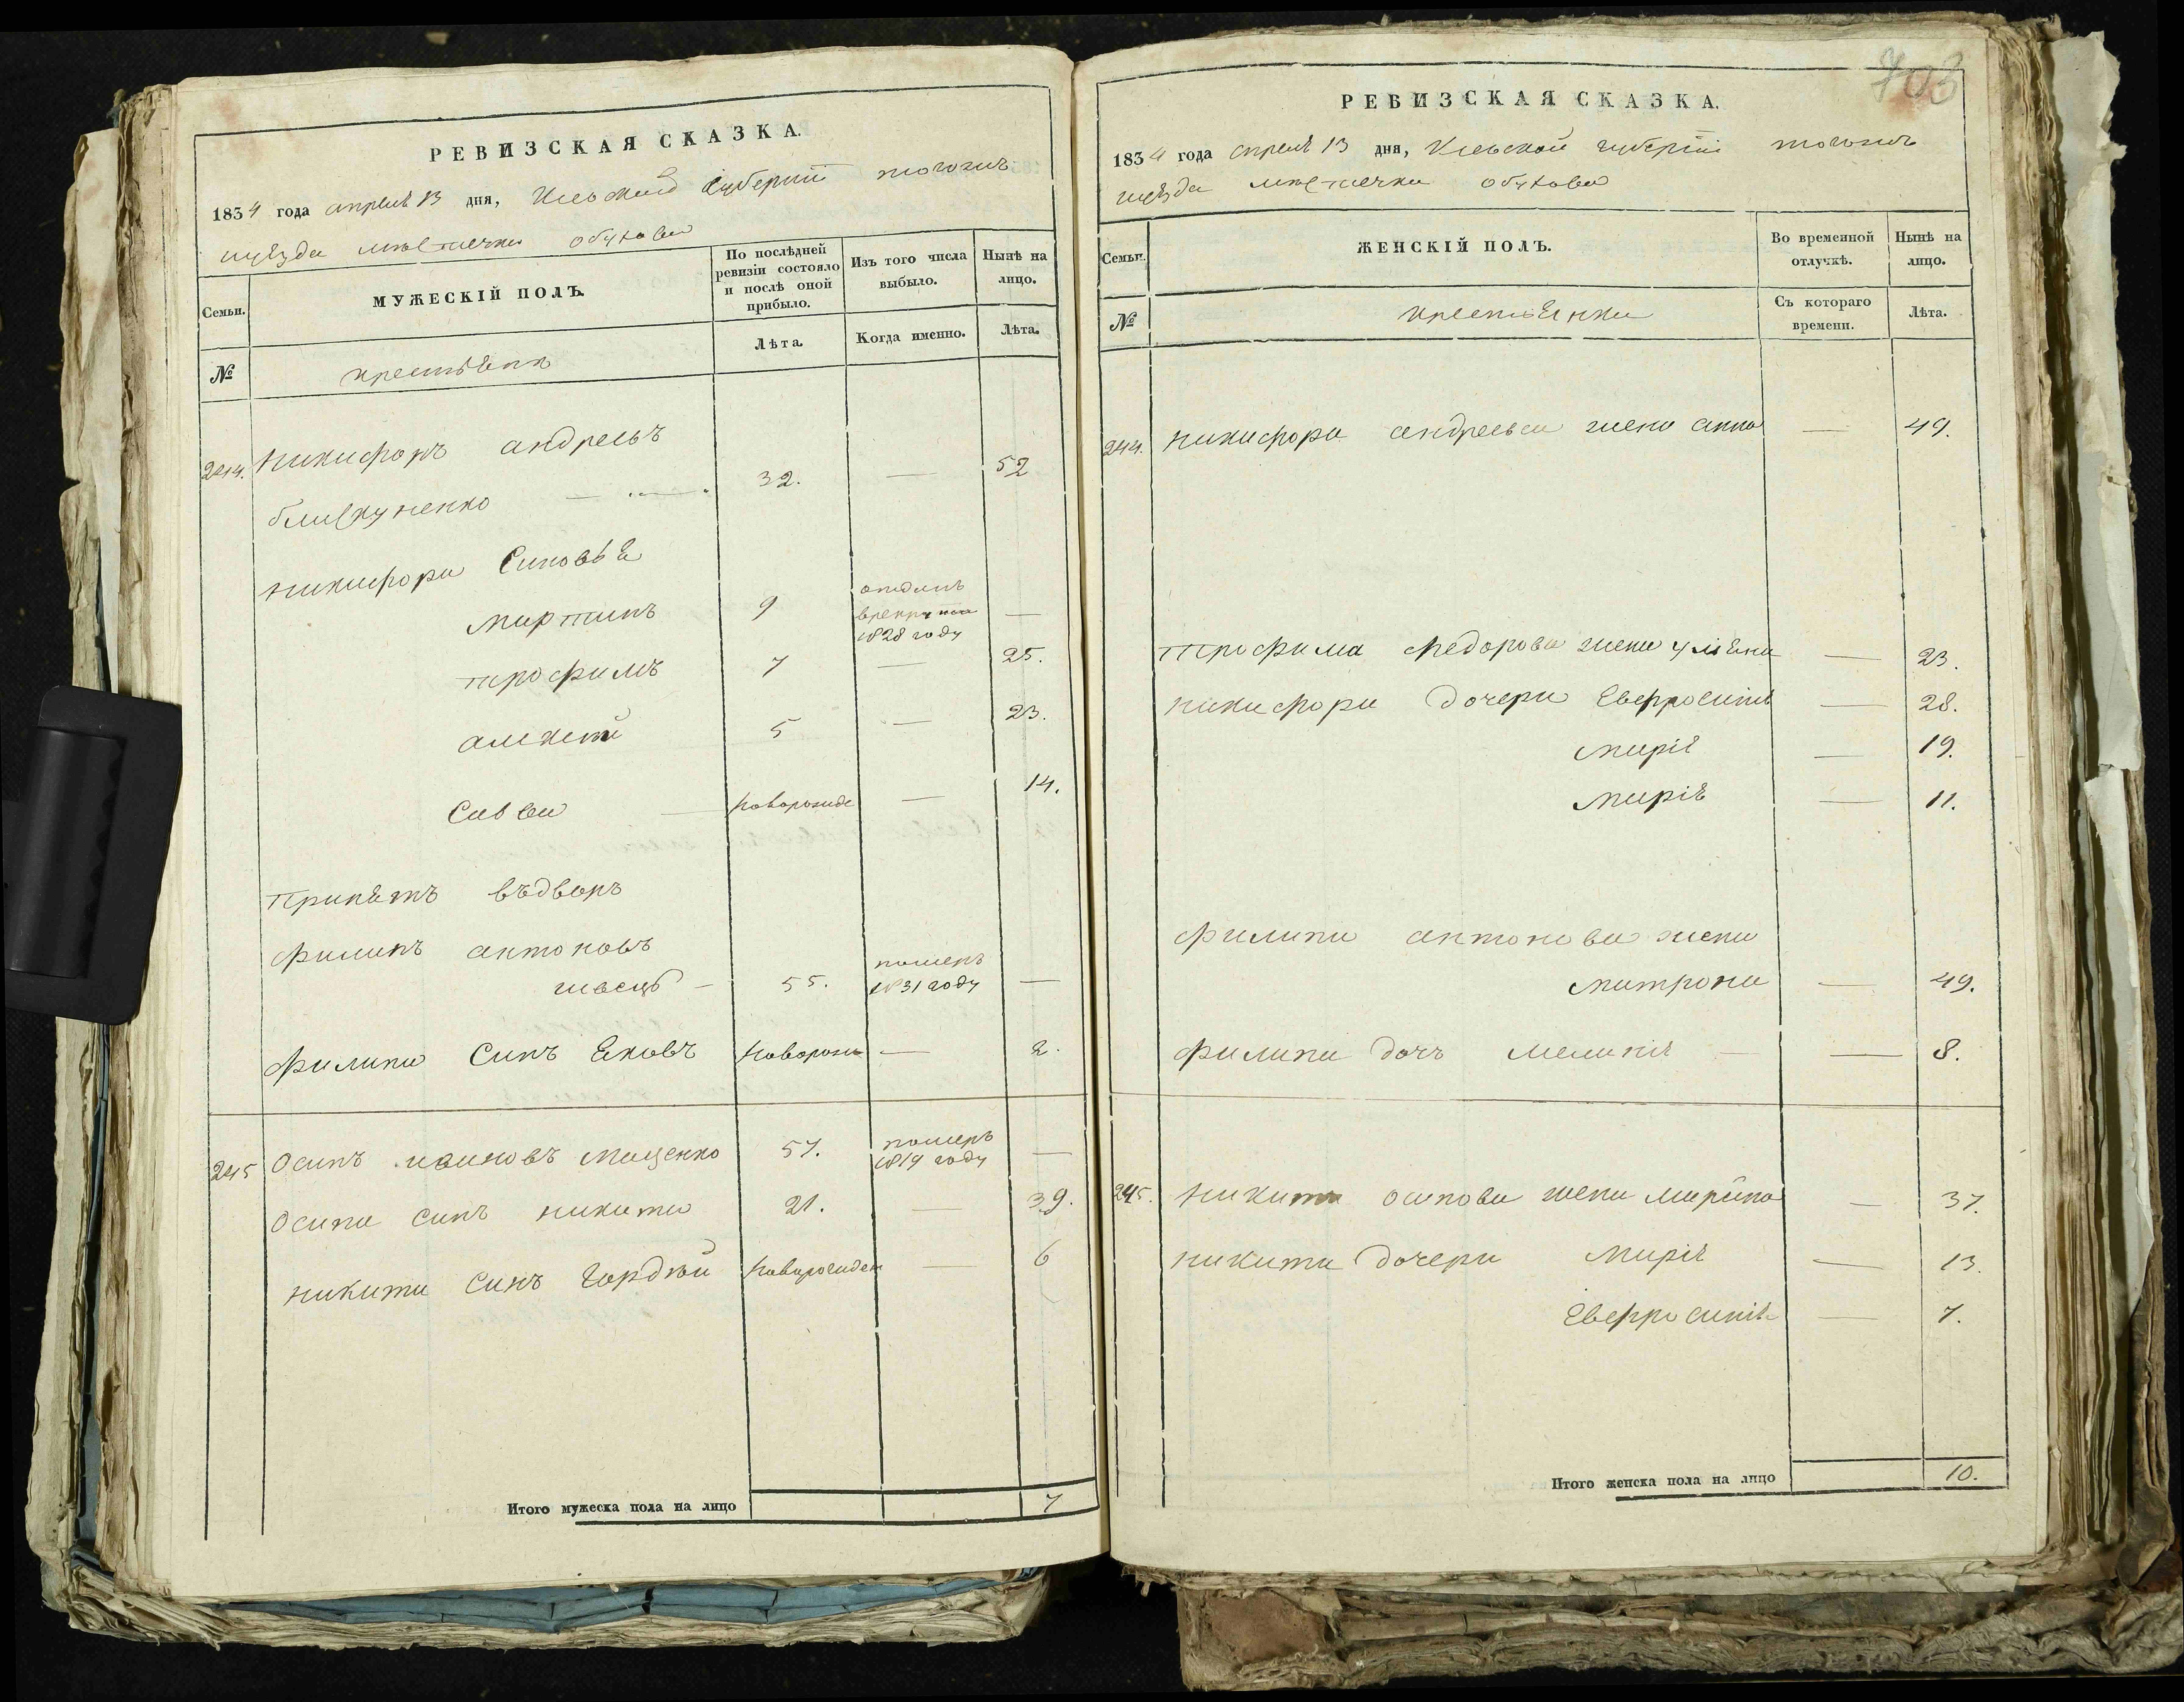 РЕВИЗСКАЯ СКАЗКА.
1834 года апреля 13 дня, Киевской губернии тогожъ
уѣзда мѣстечка обухова
Семьи.
МУЖЕСКІЙ ПОЛЪ.
По послѣдней
ревизіи состояло
и послѣ оной
прибыло.
Изъ того числа
выбыло.
Нынѣ на
лицо.
№
крестьянъ
Лѣта.
Когда именно.
Лѣта.
244. никифоръ андреевъ
близнуненко 32. — 52
никифора синовья
мартинъ 9 отданъ
врекруты
1828 году —
трофимъ 7 — 25.
алексей 5 — 23.
савва новорожде — 14.
принятъ въдворъ
филипъ антоновъ
швецъ 55. померъ
1831 году —
филипа синъ яковъ новорож — 2.
245 осипъ ивановъ мащенко 57. померъ
1819 году —
осипа синъ никита 21. — 39.
никити синъ гордѣй новорожден — 6
Итого мужеска пола на лицо 7
703
РЕВИЗСКАЯ СКАЗКА.
1834 года апреля 13 дня, Киевской губерніи тогожъ
уѣзда мѣстечка обухова
Семьи.
ЖЕНСКІЙ ПОЛЪ.
Во временной
отлучкѣ.
Нынѣ на
лицо.
№
крестьянки
Съ котораго
времени.
Лѣта.
244. никифора андреева жена анна — 49.
трофима федорова жена уліяна — 23.
никифора дочери Евфросинія — 28.
марія — 19.
марія — 11.
филипа антонова жена
матрона — 49.
филипа дочъ меланія — 8.
245. никити осипова жена марина — 37.
никити дочери марія — 13.
Евфросинія — 7.
Итого женска пола на лицо 10.